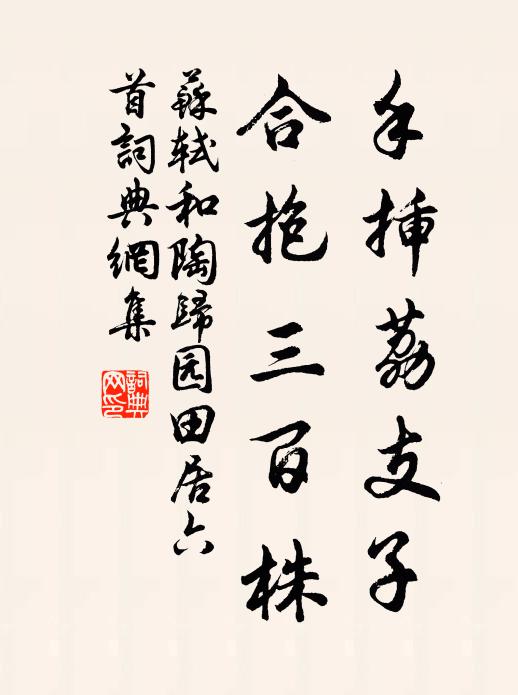 手插荔支子
合抱三百株
蘇軾和陶歸园田居六
首詞典網集
詞典
网印